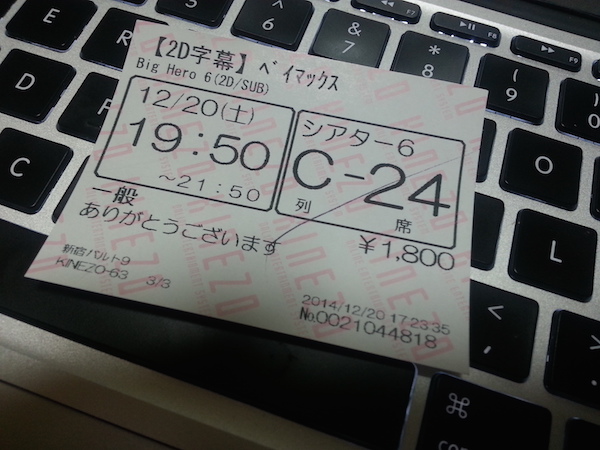 【2D字幕】ベイマックス
Big Hero 6(2D/SUB)
12/20(土)
19:50
～21:50
シアター6
C-24
列 席
一般
¥1,800
ありがとうございます
新宿バルト9
KINEZO-63 3/3
2014/12/20 17:23:35
№0021044818
KINEZO
&
7
*
8
(
9
)
0
6
F7
F8
F9
C
O
L
⌘